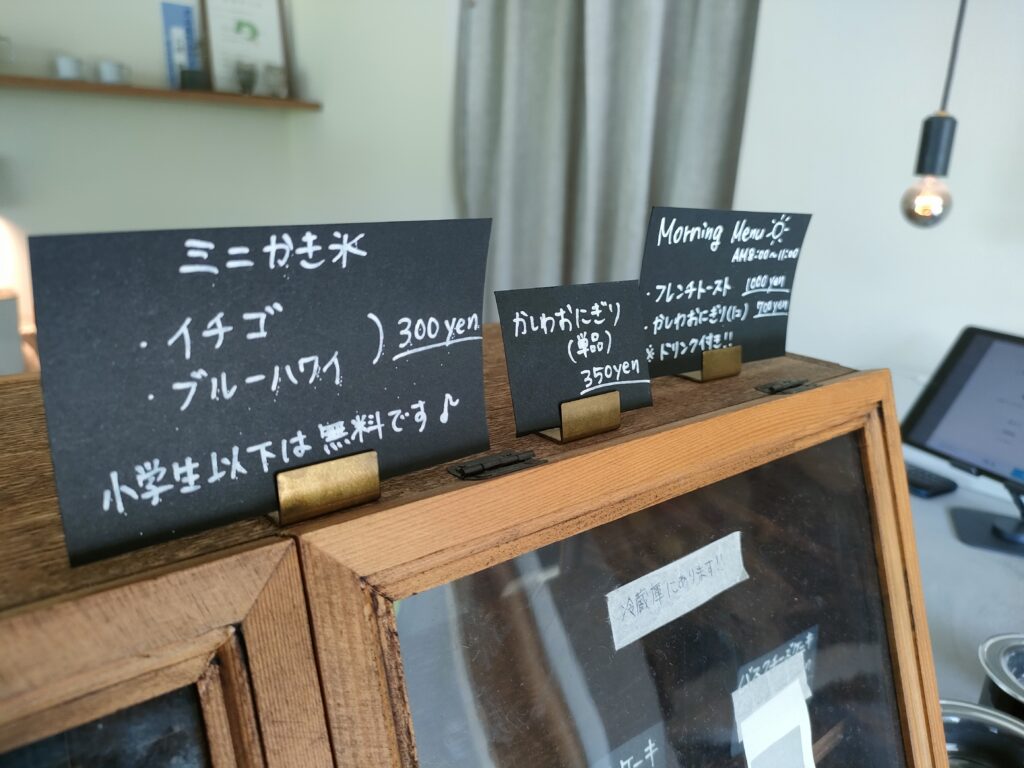 ミニかき氷
・イチゴ
・ブルーハワイ
) 300yen
小学生以下は無料です♪
かしわおにぎり
(単品)
350yen
Morning Menu
AM8:00~11:00
・フレンチトースト 1000yen
・かしわおにぎり(1コ) 700yen
※ドリンク付き!!
冷蔵庫にあります!!
ケーキ